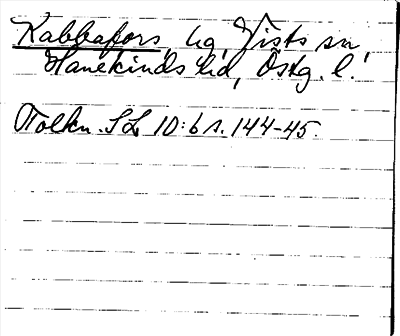 Kabbafors, hg, Vists sn,
Hanekinds hd, Östg. l.
Tolkn. SL 10:6 s. 144-45.